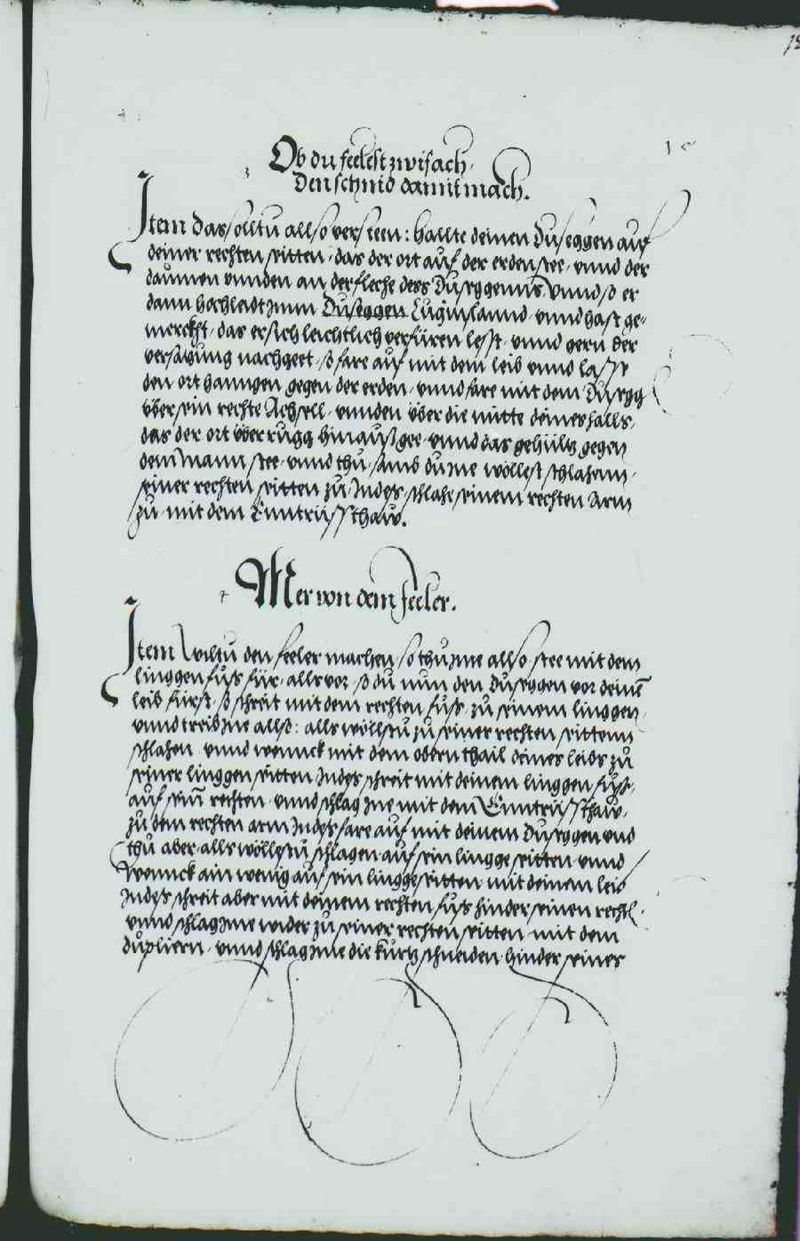 Ob du feelest zwifach
Den schnid damit mach.
Item das solltu allso versteen: hallte deinen Duseggen auf
deiner rechten seitten, das der ort auf der erden stee, vnnd der
daumen vnnden an der fleche dess Dusggen vnnd so er
dann hochleidt zum Duseggen Luginsland, vnnd hast ge-
merckht, das er sich leichtlich verfüren lesst, vnnd gern der
versatzung nachgeet, so fare auf mit dem leib vnnd lasst
den ort hanngen gegen der erden, vnnd fare mit dem Dusegg
vber sein rechte Achsell, vnnden vber die mitte deines falls,
das der ort vber rugg hinauss gee, vnnd das gehültz gegen
dem Mann stee, vnnd thu, samb du ime wöllest schlahenn,
seiner rechten seitten zu, Indess schlahe seinem rechten Arm
zu, mit dem Enntrüsthaw.
Mer von dem feeler.
Item Wiltu den feeler machen, so thu ime allso, stee mit dem
linggen fuss für, alls vor, so du nun den Duseggen vor deinem
leib fürst, so schreit mit dem rechten fuss, zu seinem linggen,
vnnd treib ine allso: alls wöllstu zu seiner rechten seittenn
schlahen, vnnd wennck mit dem obern thail deines leibs zu
seiner linggen seitten Indess schreit mit deinem linggen fuss,
auf sein rechten, vnnd schlag ine mit dem Enntrüsthaw,
zu dem rechten arm Indess fare auf mit deinem Duseggen vnd
thu aber, alls wöllestu schlagen auf sein lingge seitten, vnnd
Wennck ain wenig auf sein lingge seitten, mit deinem leib
Indess schreit aber mit deinem rechten fuss hinder seinen rechten,
vnnd schlag ine wider zu seiner rechten seitten, mit dem
dupliern, vnnd schlag ime die kurtz schneiden hinder seines